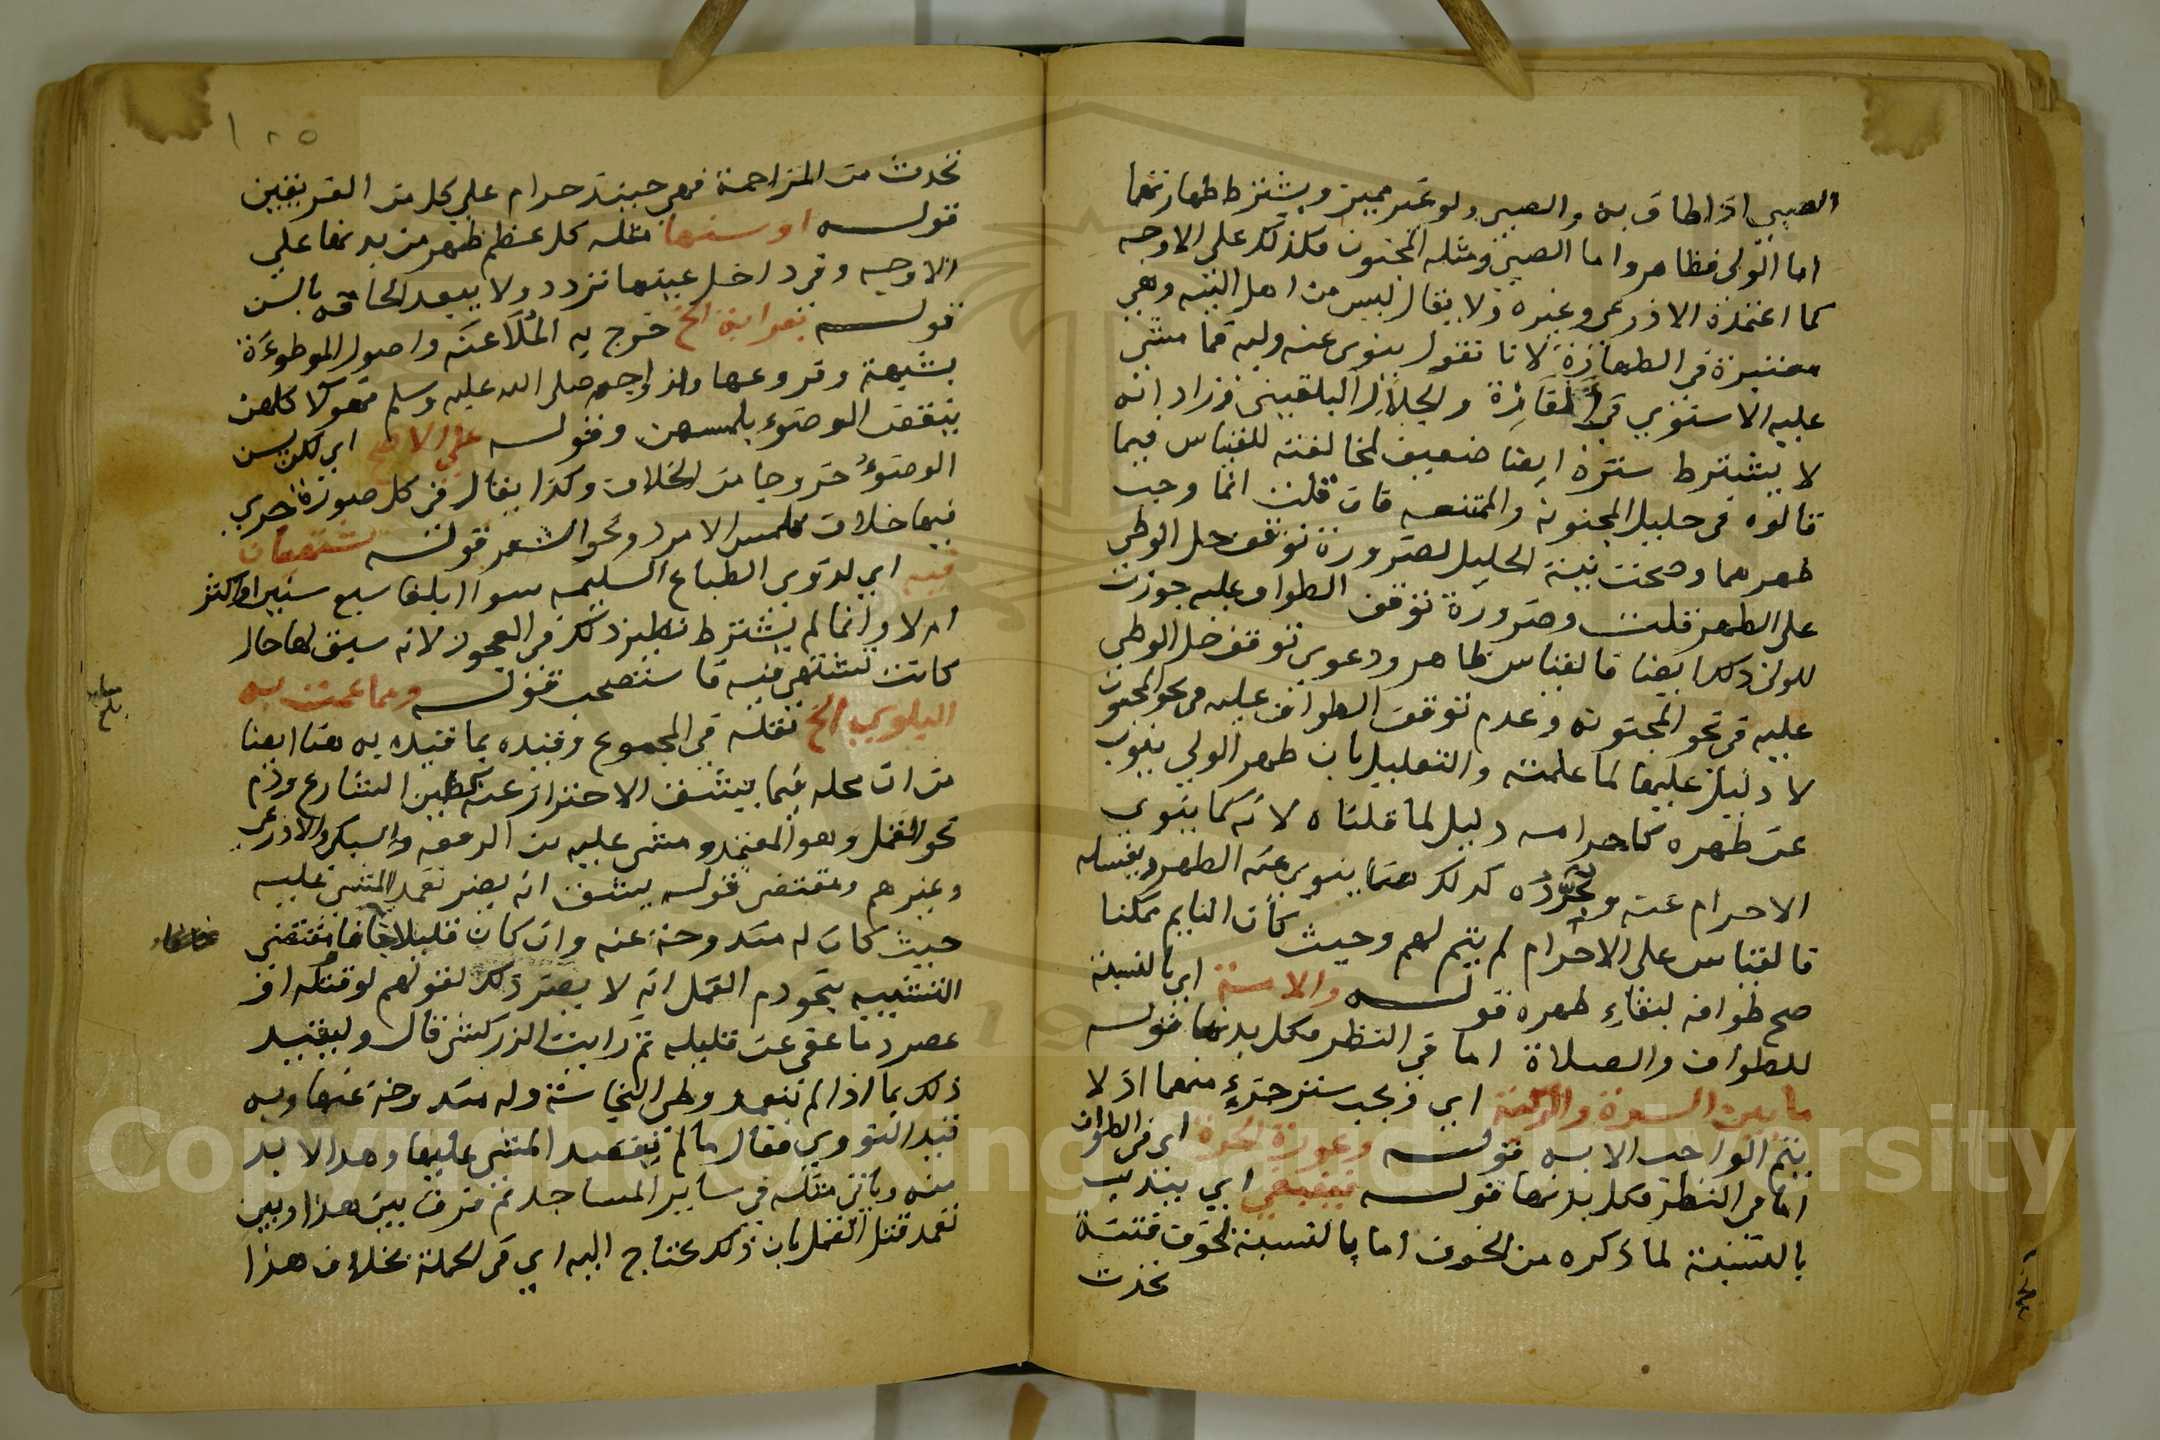 الصبي اذا طاف به والصبي ولو غير مميز ويشترط طهارتهما
اما الولي فظاهر واما الصبي ومثله المجنون فكذلك على الاوجه
كما اعتمده الاذرعي وغيره ولا يقال ليس من اهل النية وهي
معتبرة في الطهارة لانا نقول ينوي عنه وليه فما مشى
عليه الاسنوي في والجلال البلقيني فزاد انه
لا يشترط ستره ايضا ضعيف لمخالفته للقياس فيما
قالوه في حليل المجنونة والممتنعه فان قلت انما وجب
طهرهما وصحت نية الحليل لضرورة توقف حل الوطي
على الطهر قلت وضرورة توقف الطواف عليه جوزت
للولي ذلك ايضا فالقياس ظاهر ودعوى توقف حل الوطي
عليه في نحو المجنونه وعدم توقف الطواف عليه في نحو المجنون
لا دليل عليها لما علمته والتعليل بان طهر الولي ينوب
عن طهره كاحرامه دليل لما قلناه لانه كما ينوي
الاحرام عنه ويجرده كذلك هنا ينوي عنه الطهر ويغسله
فالقياس على الاحرام لم يتم لهم وحيث كان النايم ممكنا
صح طوافه لبقاء طهره قوله والامة اي بالنسبة
للطواف والصلاة اما في النظر فكل بدنها قوله
ما بين السرة والركبة اي ويجب ستر جزء منهما اذ لا
يتم الواجب الا به قوله وعورة الحرة اي في الطواف
اما في النظر فكل بدنها قوله فينبغي اي يندب
بالنسبة لما ذكره من الخوف اما بالنسبة لخوف فتنة
تحدث
١٨٥
تحدث من المزاحمة فهي حينئذ حرام على كل من الفريقين
قوله او سنها مثله كل عظم ظهر من بدنها على
الاوجه وفي داخل عينها تردد ولا يبعد الحاقه بالسن
قوله بقرابة الخ خرج به الملاعنة واصول الموطوءة
بشبهة وفروعها وازواجه صلى الله عليه وسلم فهولا كلهن
ينقض الوضوء بلمسهن وقوله على الاصح اي لكن يسن
الوضوء خروجا من الخلاف وكذا يقال في كل صورة اخرى
فيها خلاف كلمس الامرد ونحو الشعر قوله تشتهيان
فيه اي لذوي الطباع السليمه سواا بلغا سبع سنين او اكثر
ام لا وانما لم يشترط نظير ذلك في العجوز لانه سبق لها حال
كانت تشتهى فيه فاستصحب قوله ومما عمت به
البلوى الخ نقله في المجموع وقيده بما قيده به هنا ايضا
من ان محله فيما يشق الاحتراز عنه كطين الشارع ودم
نحو القمل وهو المعتمد ومشى عليه بن الرفعه والسبكي والاذرعي
وغيرهم ومقتضى قوله يشق انه يضر تعمد المشي عليه
حيث كان له مندوحة عنه وان كان قليلا جافا مقتضى
التشبيه بنحو دم القمل انه لا يضر ذلك لقولهم لو قتله او
عصر دما عفي عن قليله ثم رايت الزركشي قال وليقيد
ذلك بما اذا لم يتعمد وطى النجاسة وله مندوحة عنها وبه
قيد النووي فقال ما لم يقصد المشي عليها وهذا لا بد
منه وياتي مثله في ساير المساجد ثم فرق بين هذا وبين
تعمد قتل القمل بان ذلك يحتاج اليه اي في الجملة بخلاف هذا